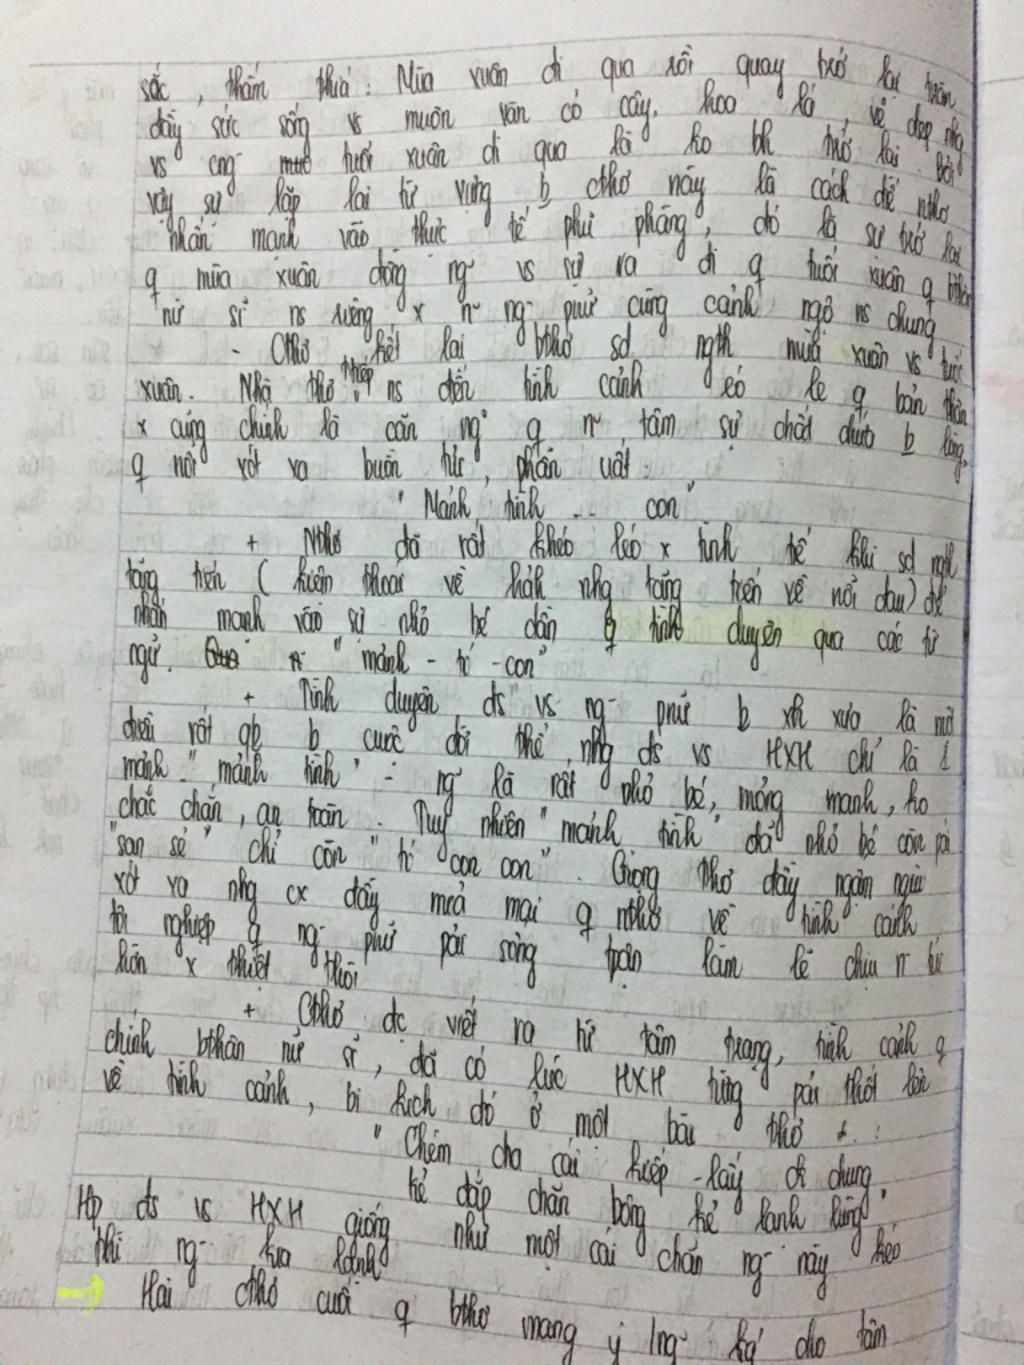 sắc, thấm thía: Mùa xuân đi qua rồi quay trở lại vẫn
đầy sức sống vs muôn vàn cỏ cây, hoa lá, vẻ đẹp nhg
vs cng tuổi xuân đi qua là ko bh trở lại. Bởi
vậy sự lặp lại từ vựng b cthơ này là cách để nthơ
nhấn mạnh vào thực tế phũ phàng, đó là sự trở lại
q mùa xuân đồng ng vs sự ra đi q tuổi xuân q bthân
nữ sĩ ns riêng x n~ ng phữ cùng cảnh ngộ ns chung
- Cthơ kết lại bthơ sd ngth mùa xuân vs tuổi
xuân. Nhà thơ tiếp ns đến tình cảnh éo le q bản thân
x cũng chính là căn ng q n~ tâm sự chất chứa b lòng,
q nỗi xót xa buồn tủi, phẫn uất
"Mảnh tình ... con"
+ Nthơ đã rất khéo léo x tinh tế khi sd ngth
tăng tiến (kiên thoái về hành nhg tăng tiến về nỗi đau) để
nhấn mạnh vào sự nhỏ bé dần q tình duyên qua các từ
ngữ. "mảnh - tí - con"
+ Tình duyên đs vs ng phữ b xh xưa là một
điều rất qtr b cuộc đời thế, nhg đs vs HXH chỉ là 1
mảnh "mảnh tình" - ng là rất nhỏ bé, mỏng manh, ko
chắc chắn, an toàn. Tuy nhiên "mảnh tình" đã nhỏ bé còn pải
"san sẻ" chỉ còn "tí con con". Giọng thơ đầy ngậm ngùi
xót xa nhg cx đầy mỉa mai q nthơ về tình cảnh
tội nghiệp q ng phữ pải sống phận làm lẽ chịu n~ tủi
hờn x thiệt thòi
+ Cthơ đc viết ra từ tâm trạng, tình cảnh q
chính bthân nữ sĩ, đã có lúc HXH từng pải thốt lên
về tình cảnh, bi kịch đó ở một bài thơ :
"Chém cha cái kiếp lấy ck chung
kẻ đắp chăn bông kẻ lạnh lùng"
Hp đs vs HXH giống như một cái chăn ng này kéo
thì ng kia lạnh
→ Hai cthơ cuối q bthơ mang ý kq cho tâm